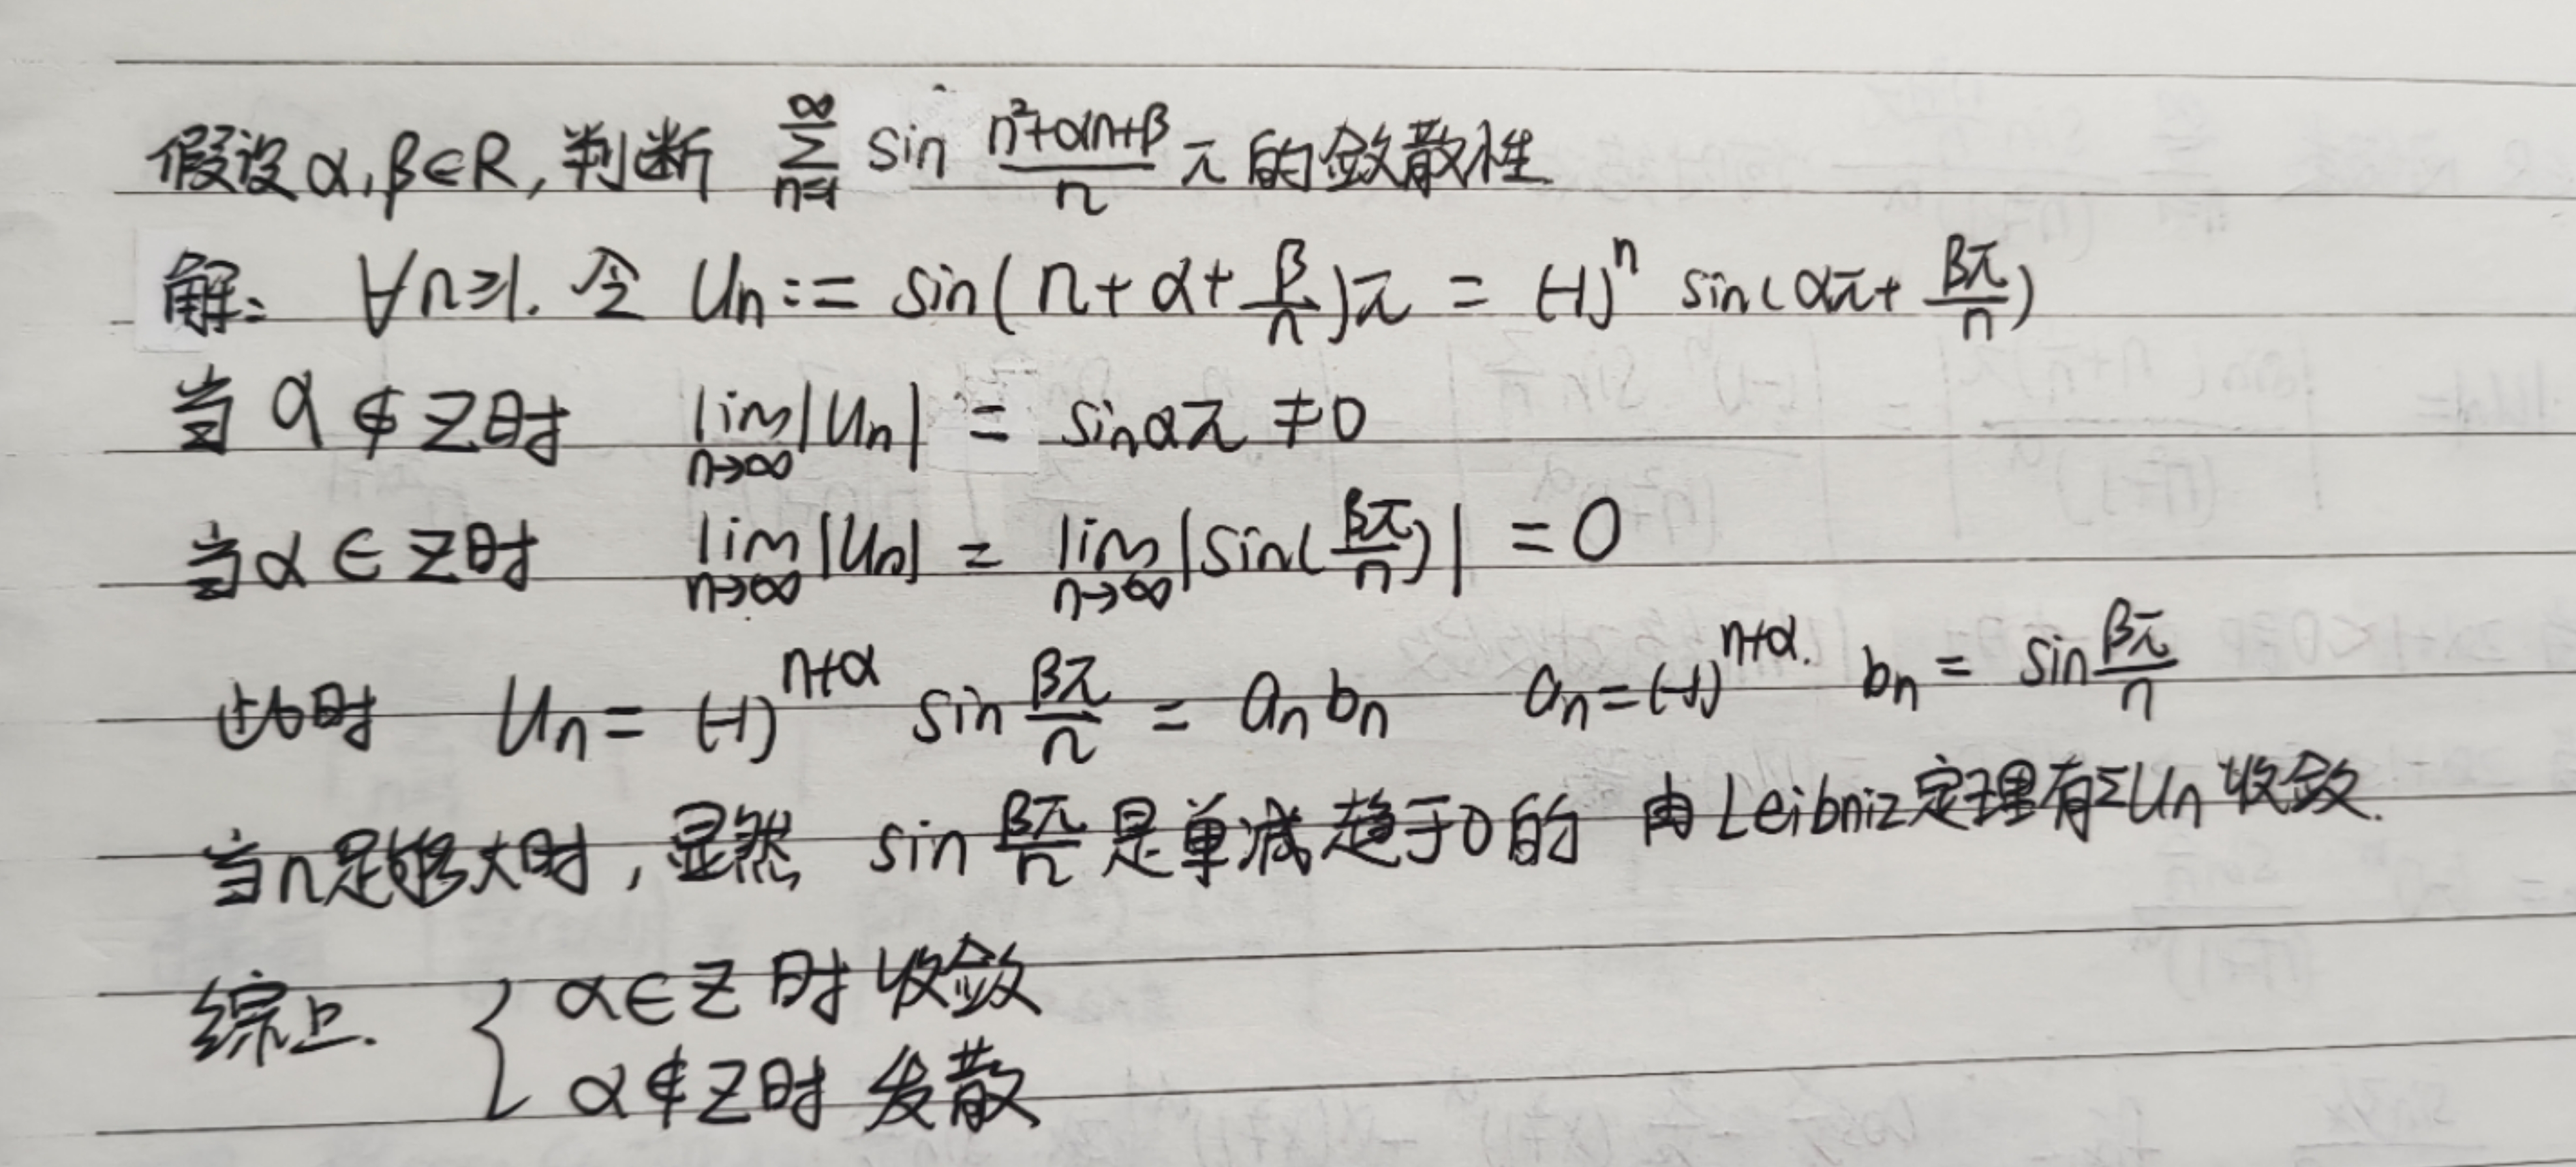 假设α,β∈R,判断 ∑_{n=1}^{∞} sin \frac{n²+αn+β}{n} π 的敛散性
解: ∀n≥1. 令 Un := sin(n+α+\frac{β}{n})π = (-1)^n sin(απ+\frac{βπ}{n})
当 α∉Z时 lim_{n→∞}|Un| = sinαπ ≠0
当α∈Z时 lim_{n→∞}|Un| = lim_{n→∞}|sin(\frac{βπ}{n})| =0
此时 Un = (-1)^{n+α} sin\frac{βπ}{n} = an bn an=(-1)^{n+α}. bn = sin\frac{βπ}{n}
当n足够大时,显然 sin\frac{βπ}{n}是单减趋于0的 由Leibniz定理有∑Un收敛.
综上. { α∈Z时收敛
α∉Z时 发散